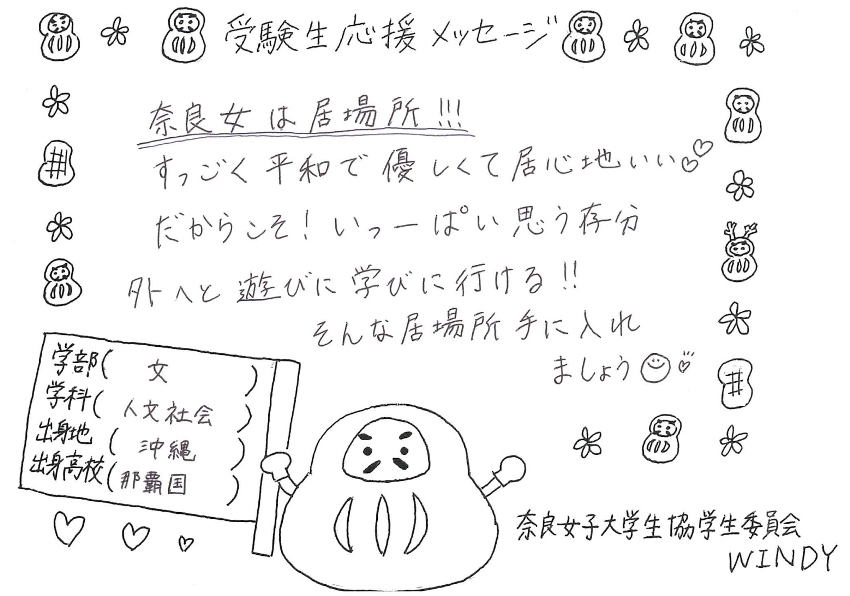 受験生応援メッセージ
奈良女は居場所!!!
すっごく平和で優しくて居心地いい♡♡
だからこそ!いっーぱい思う存分
外へと遊びに学びに行ける!!
そんな居場所手に入れ
ましょう
学部(文)
学科(人文社会)
出身地(沖縄)
出身高校(那覇国)
奈良女子大学生協学生委員会
WINDY